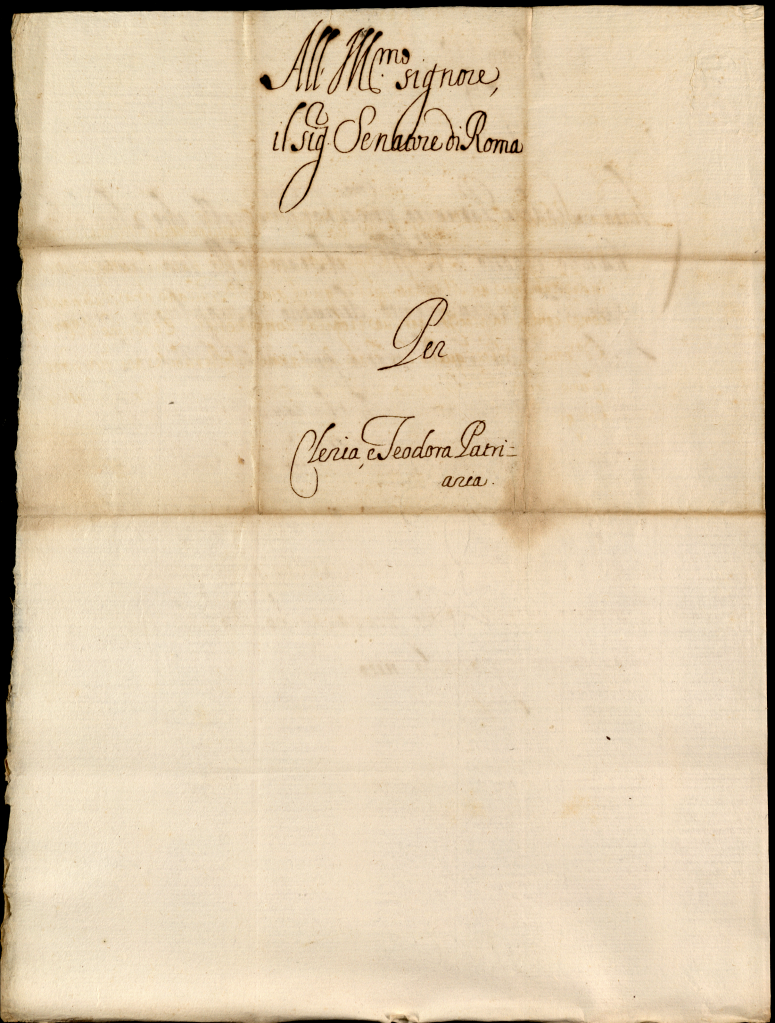 All' Ill.mo signore,
il sig.r Senatore di Roma
Per
Cleria, e Teodora Patri=
arca.